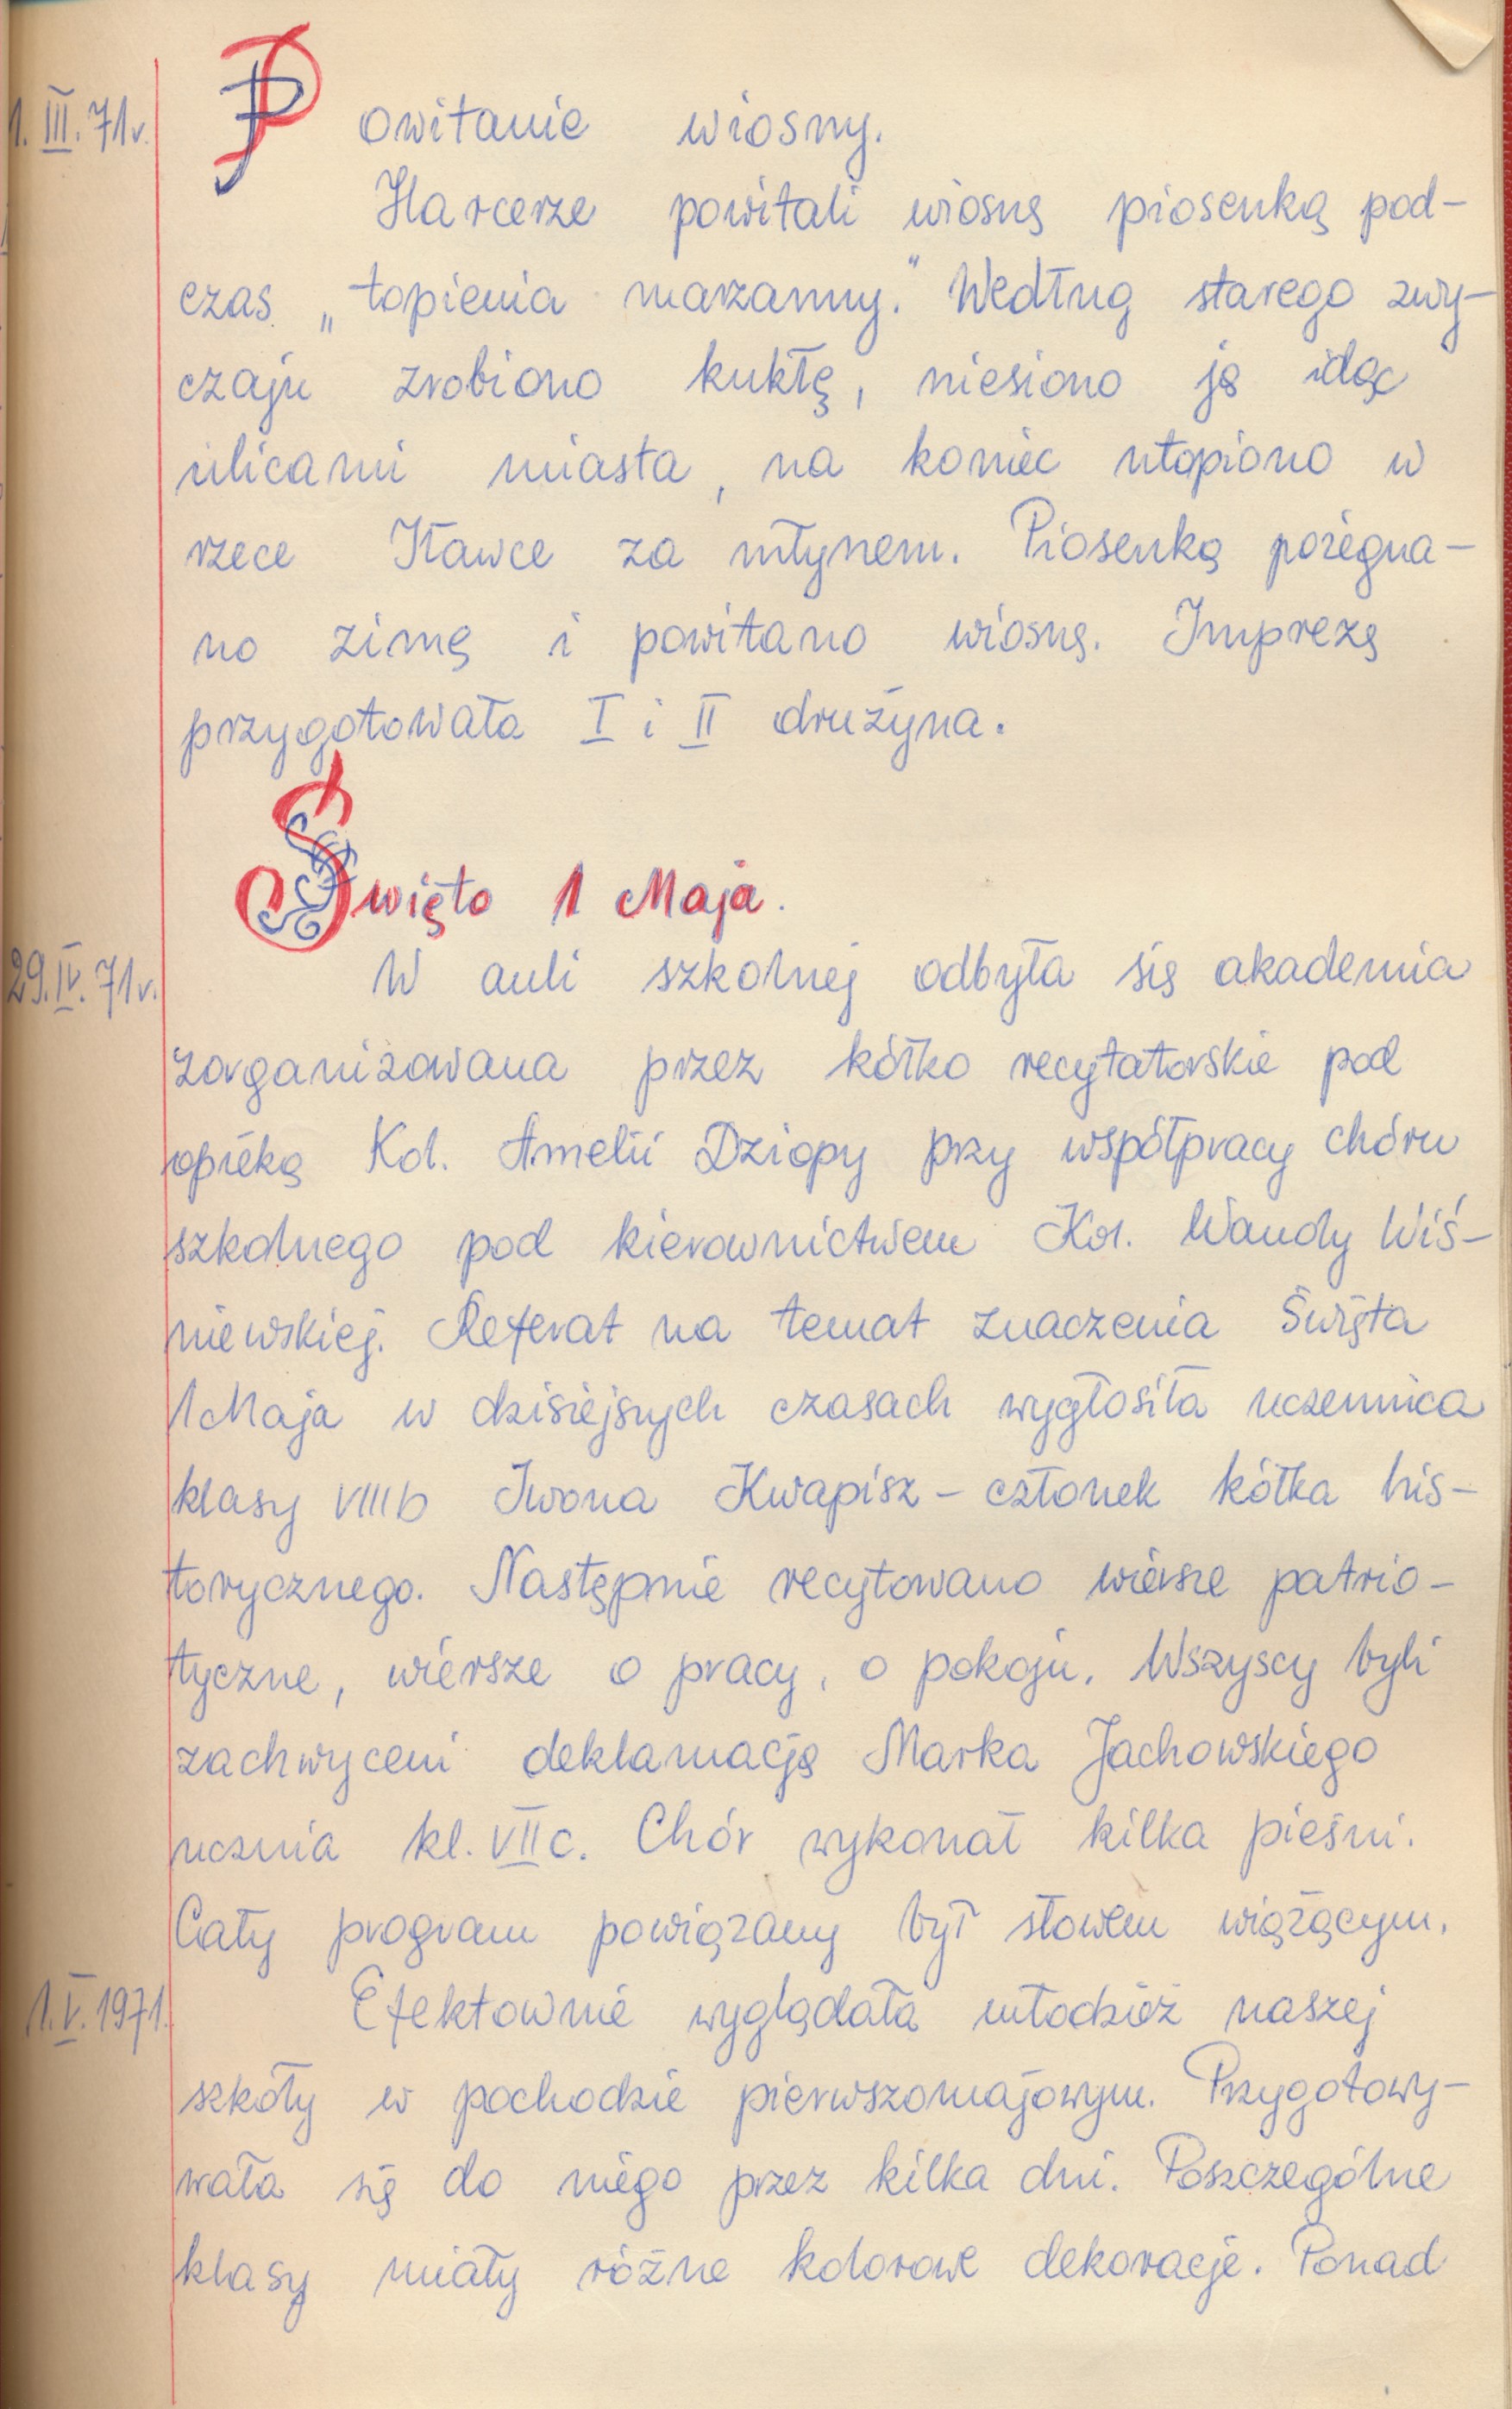 1. III. 71r. Powitanie wiosny.
Harcerze powitali wiosnę piosenką pod-
czas „topienia marzanny." Według starego zwy-
czaju zrobiono kukłę, niesiono ją idąc
ulicami miasta, na koniec utopiono w
rzece Iławce za młynem. Piosenką pożegna-
no zimę i powitano wiosnę. Imprezę
przygotowała I i II drużyna.
Święto 1 Maja.
29. IV. 71r. W auli szkolnej odbyła się akademia
zorganizowana przez kółko recytatorskie pod
opieką Kol. Amelii Dziopy przy współpracy chóru
szkolnego pod kierownictwem Kol. Wandy Wiś-
niewskiej. Referat na temat znaczenia Święta
1 Maja w dzisiejszych czasach wygłosiła uczennica
klasy VIIIb Iwona Kwapisz - członek kółka his-
torycznego. Następnie recytowano wiersze patrio-
tyczne, wiersze o pracy, o pokoju. Wszyscy byli
zachwyceni deklamacją Marka Jachowskiego
ucznia kl. VIIc. Chór wykonał kilka pieśni.
Cały program powiązany był słowem wiążącym.
1. V. 1971. Efektownie wyglądała młodzież naszej
szkoły w pochodzie pierwszomajowym. Przygotowy-
wała się do niego przez kilka dni. Poszczególne
klasy miały różne kolorowe dekoracje. Ponad